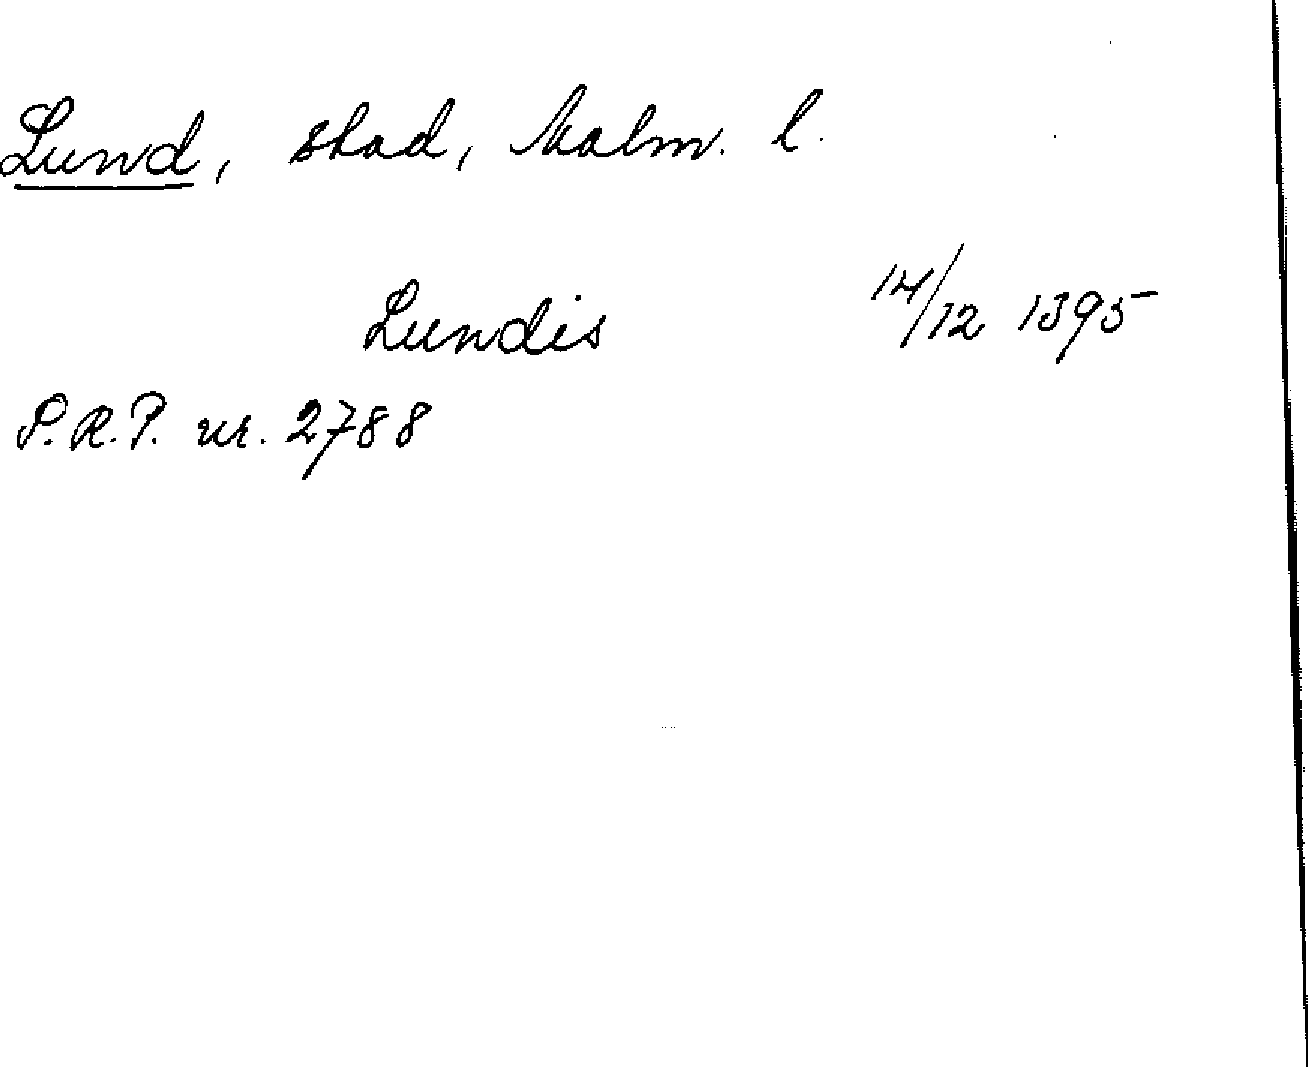 Lund, stad, Malm. l.
Lundis 14/12 1395
P.R.P. nr. 2788